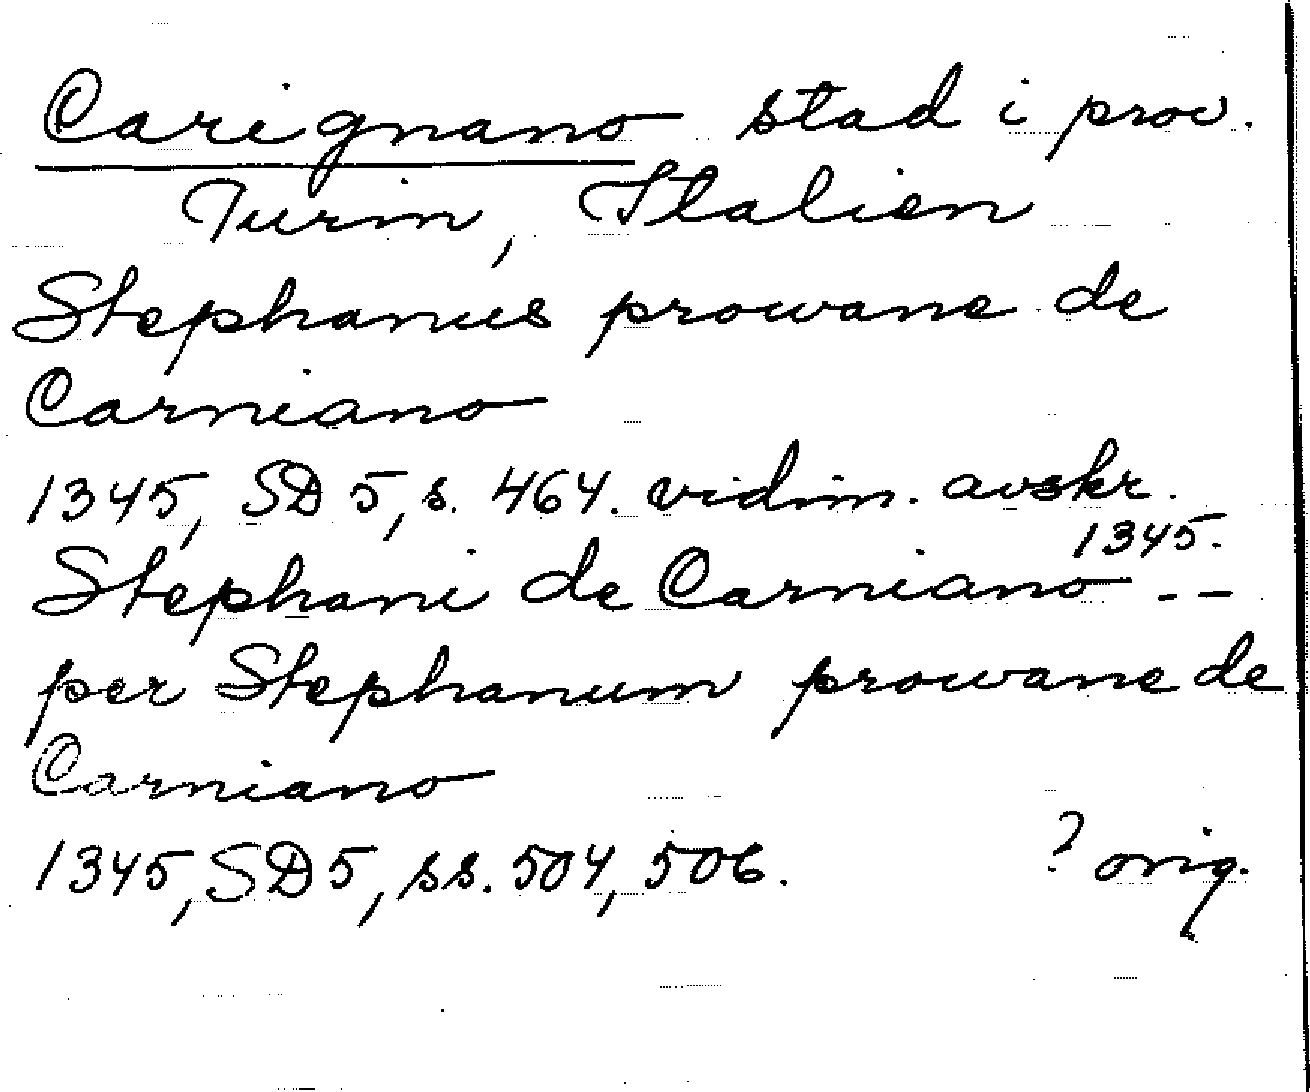 Carignano stad i prov.
Turin, Italien
Stephanus prowane de
Carniano
1345, SD 5, s. 464. vidim. avskr.
1345.
Stephani de Carniano --
per Stephanum prowane de
Carniano
1345, SD 5, ss. 504, 506. ? orig.